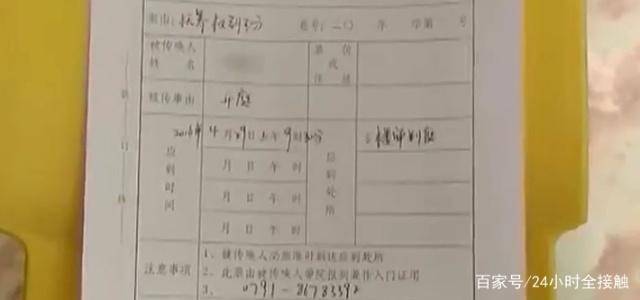 案由:抚养权纠纷 卷号:二〇 年 字第 号
被传唤人姓名 单位或住址
被传事由 开庭
应到时间 2016年4月29日上午9时30分 应到处所 三楼审判庭
月 日 午 时
月 日 午 时
月 日 午 时
注意事项
1、被传唤人必须准时到达应到处所
2、此票由被传唤人带院报到兼作入门证用
3、0791-
装 订 线
百家号/24小时全接触